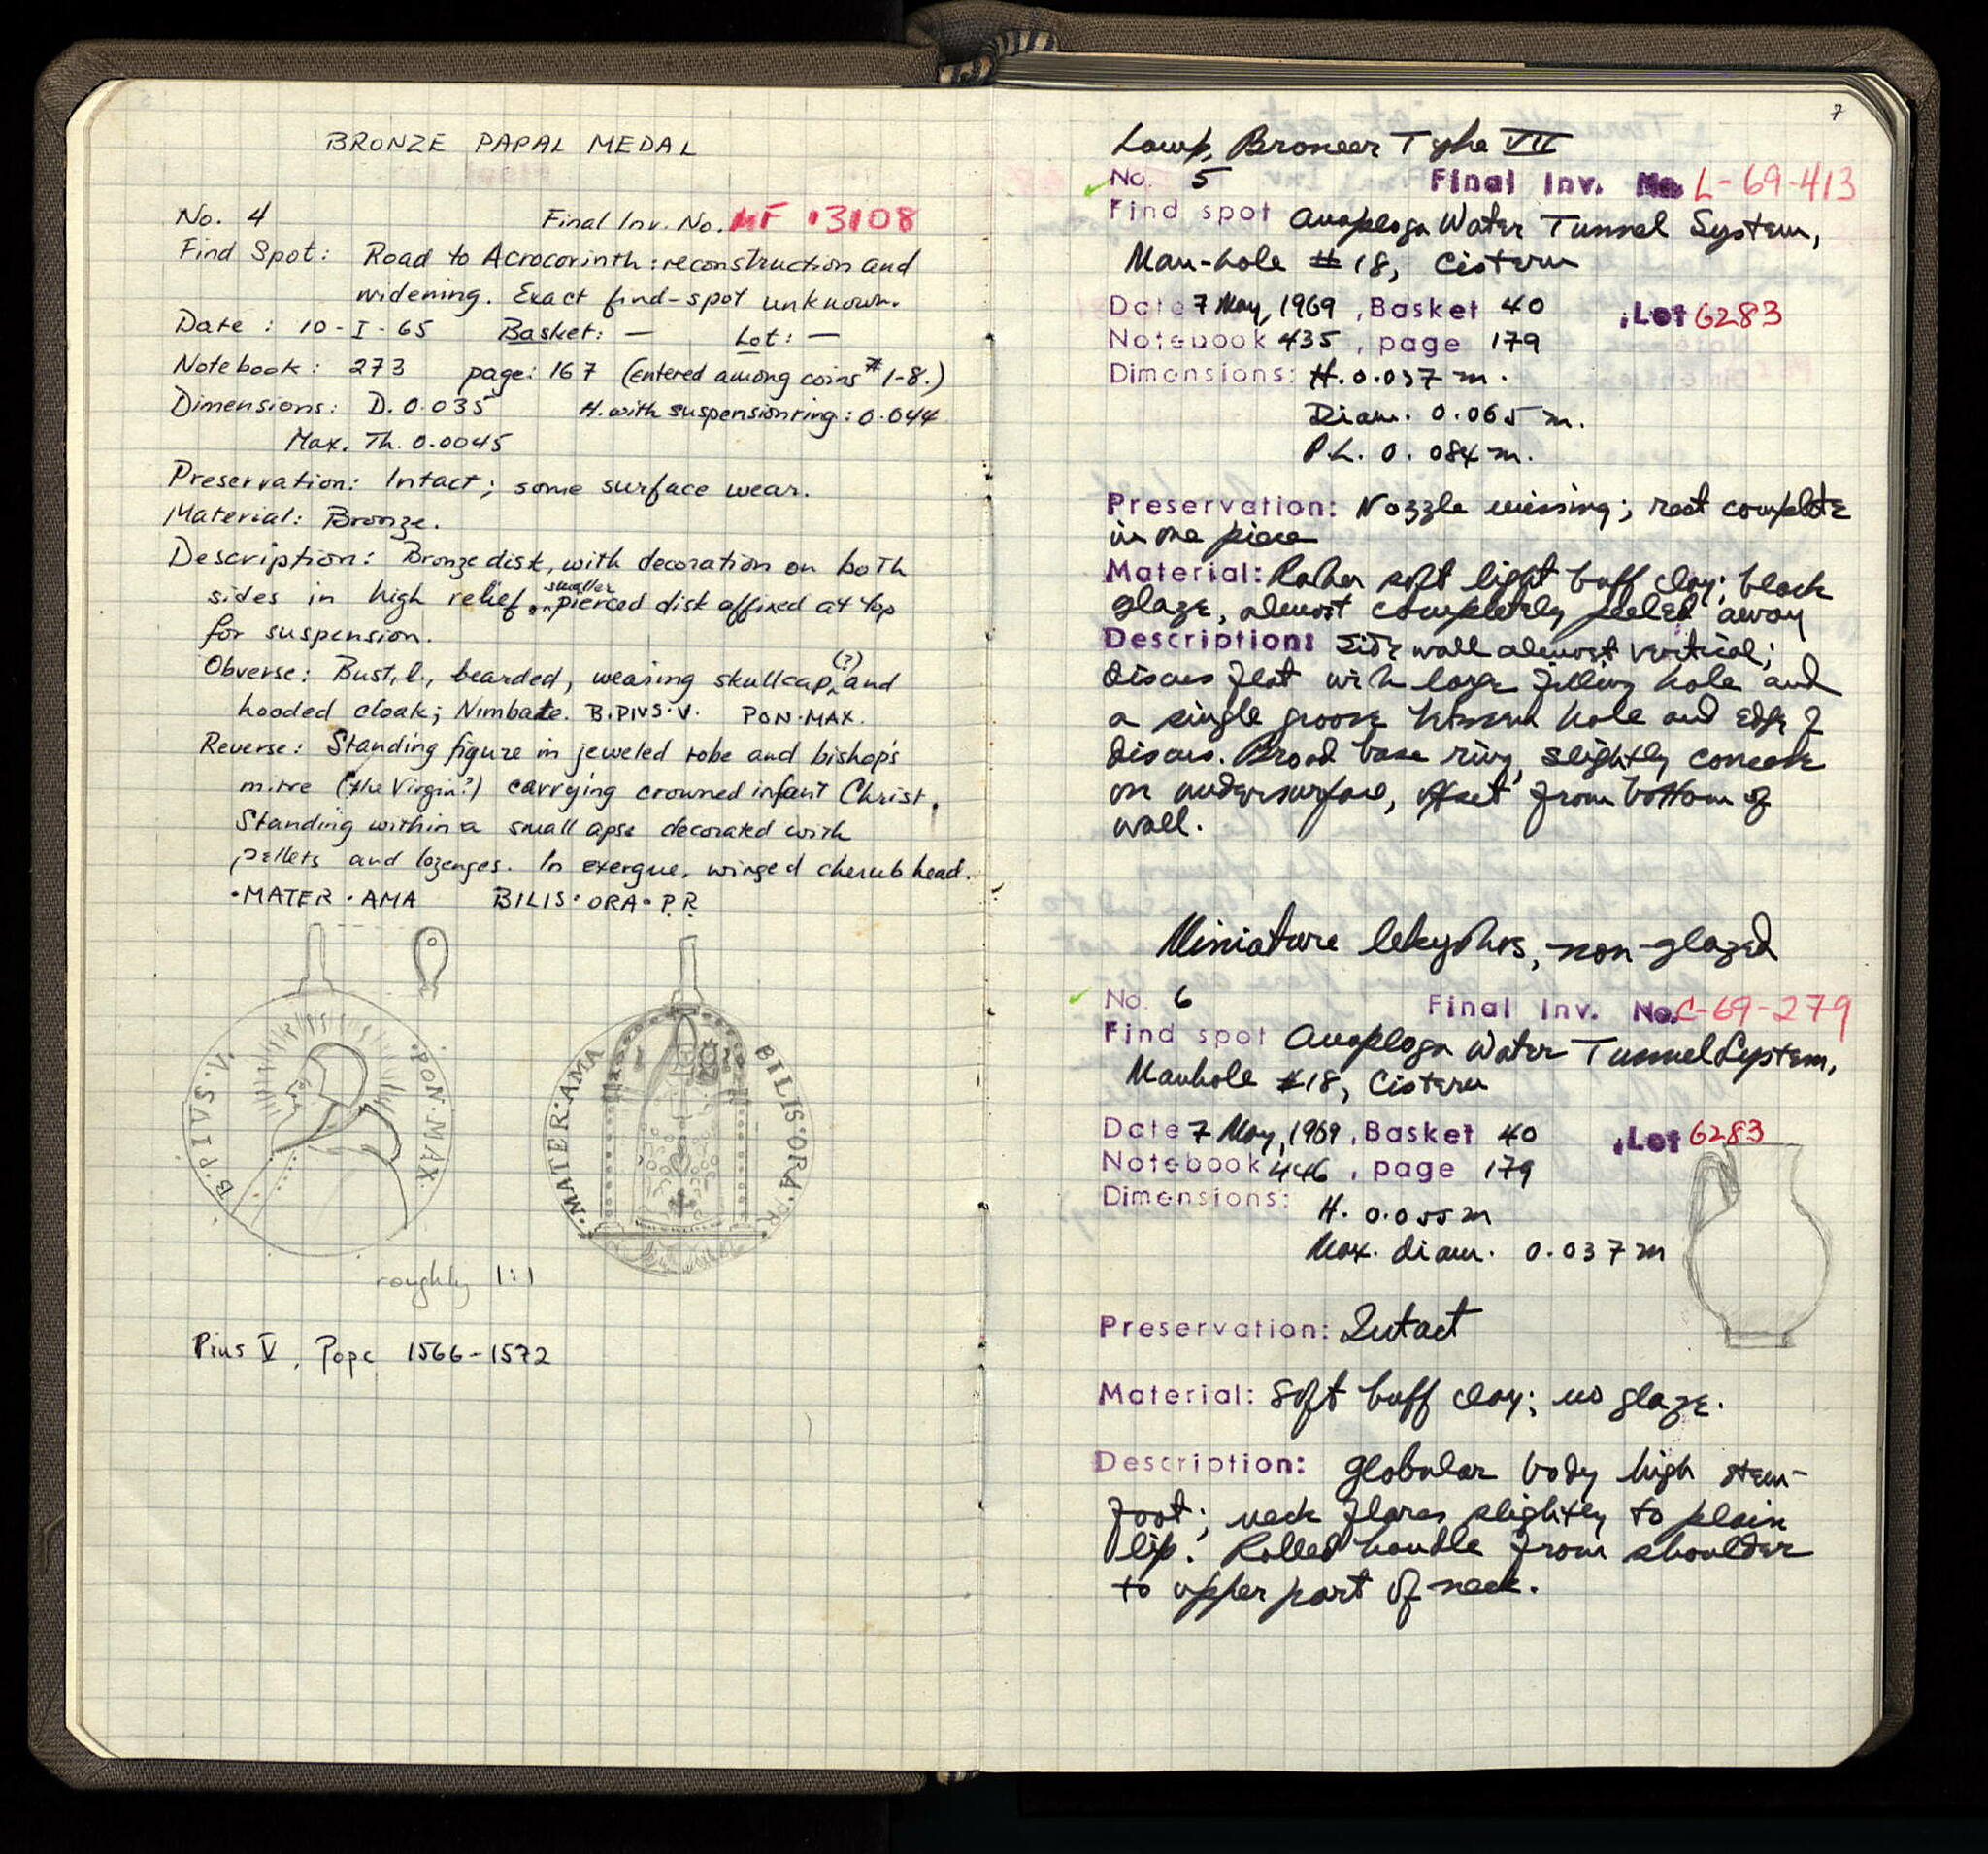 BRONZE PAPAL MEDAL
No. 4 Final Inv. No. MF 13108
Find Spot: Road to Acrocorinth: reconstruction and
widening. Exact find-spot unknown.
Date: 10-I-65 Basket: — Lot: —
Notebook: 273 page: 167 (entered among coins #1-8.)
Dimensions: D. 0.035 H. with suspension ring: 0.044
Max. Th. 0.0045
Preservation: Intact; some surface wear.
Material: Bronze.
Description: Bronze disk, with decoration on both
sides in high relief, on smaller pierced disk affixed at top
for suspension.
Obverse: Bust, l., bearded, wearing skullcap (?) and
hooded cloak; Nimbate. B.PIVS.V. PON.MAX.
Reverse: Standing figure in jeweled robe and bishop's
mitre (the Virgin?) carrying crowned infant Christ.
Standing within a small apse decorated with
pellets and lozenges. In exergue, winged cherub head.
·MATER·AMA BILIS·ORA·P.R.
B·PIVS·V. ·PON·MAX·
·MATER·AMA BILIS·ORA·PR
roughly 1:1
Pius V, Pope 1566-1572
7
Lamp, Broneer Type VII
No. 5 Final Inv. No. L-69-413
Find spot Anaploga Water Tunnel System,
Man-hole #18, Cistern
Date 7 May, 1969, Basket 40, Lot 6283
Notebook 435, page 179
Dimensions: H. 0.037 m.
Diam. 0.065 m.
P.L. 0.084 m.
Preservation: Nozzle missing; rest complete
in one piece
Material: Rather soft light buff clay; black
glaze, almost completely peeled away
Description: Side wall almost vertical;
discus flat with large filling hole and
a single groove between hole and edge of
discus. Broad base ring, slightly concave
on undersurface, offset from bottom of
wall.
Miniature lekythos, non-glazed
No. 6 Final Inv. No. C-69-279
Find spot Anaploga Water Tunnel System,
Manhole #18, Cistern
Date 7 May, 1969, Basket 40, Lot 6283
Notebook 446, page 179
Dimensions: H. 0.055 m
Max. diam. 0.037 m
Preservation: Intact
Material: Soft buff clay; no glaze.
Description: Globular body high stem-
foot; neck flares slightly to plain
lip. Rolled handle from shoulder
to upper part of neck.